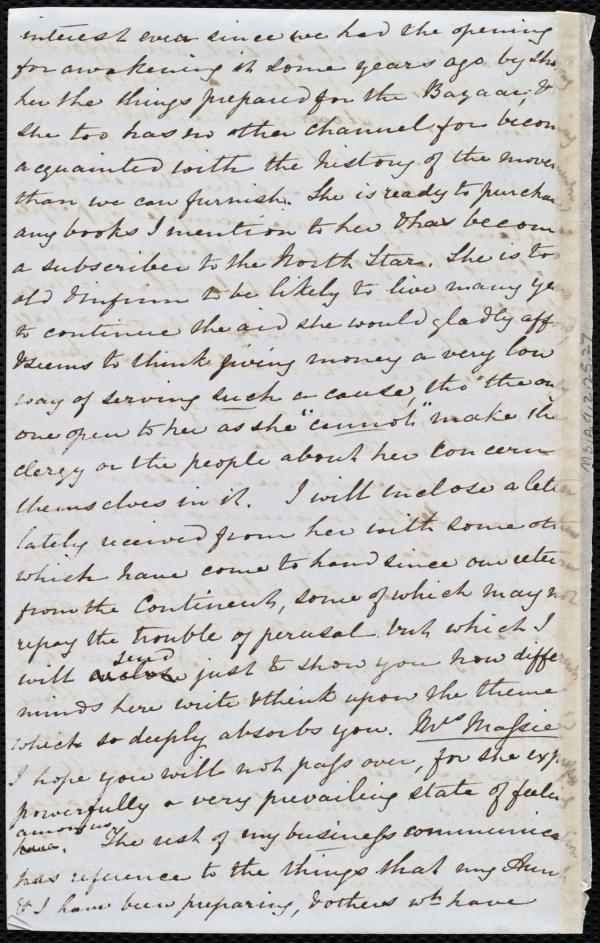 interest ever since we had the opening
for awakening it some years ago by sho
her the things prepared for the Bazaar, &
she too has no other channel for becom
acquainted with the history of the movem
than we can furnish. She is ready to purcha
any books I mention to her & has becom
a subscriber to the North Star. She is too
old & infirm to be likely to live many ye
to continue the aid she would gladly aff
& seems to think giving money a very low
way of serving such a cause, tho' the only
one open to her as she "cannot" make the
clergy or the people about her concern
themselves in it. I will inclose a letter
lately received from her with some others
which have come to hand since our return
from the Continent, some of which may not
repay the trouble of perusal but which I
will send just to show you how different
minds here write & think upon the theme
which so deeply absorbs you. Mrs Massie
I hope you will not pass over, for she exp
powerfully a very prevailing state of feelin
among us
here. The rest of my business communica
has reference to the things that my Aun
& I have been preparing, & others wh have
MS.A.9.2.25.27